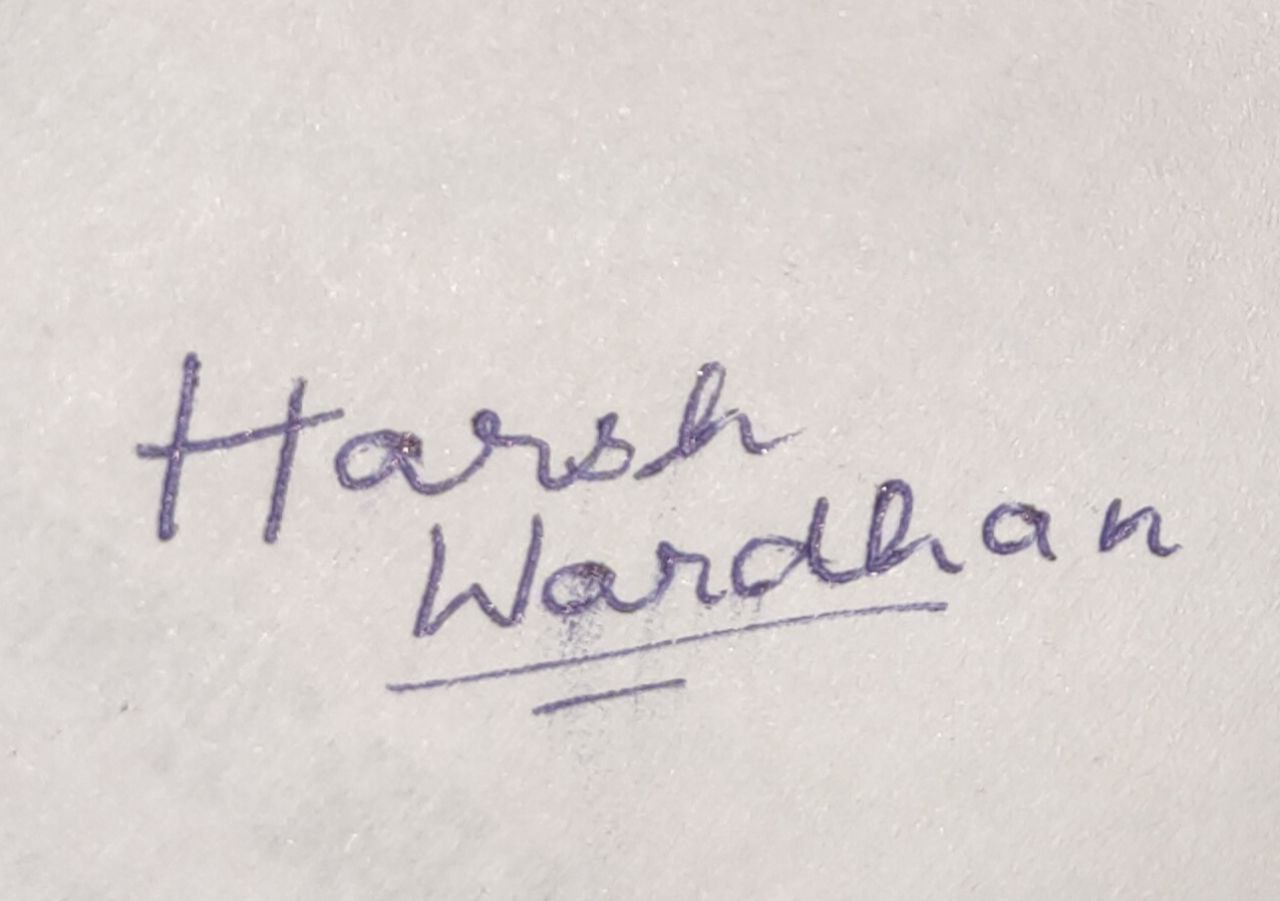 Harsh
Wardhan